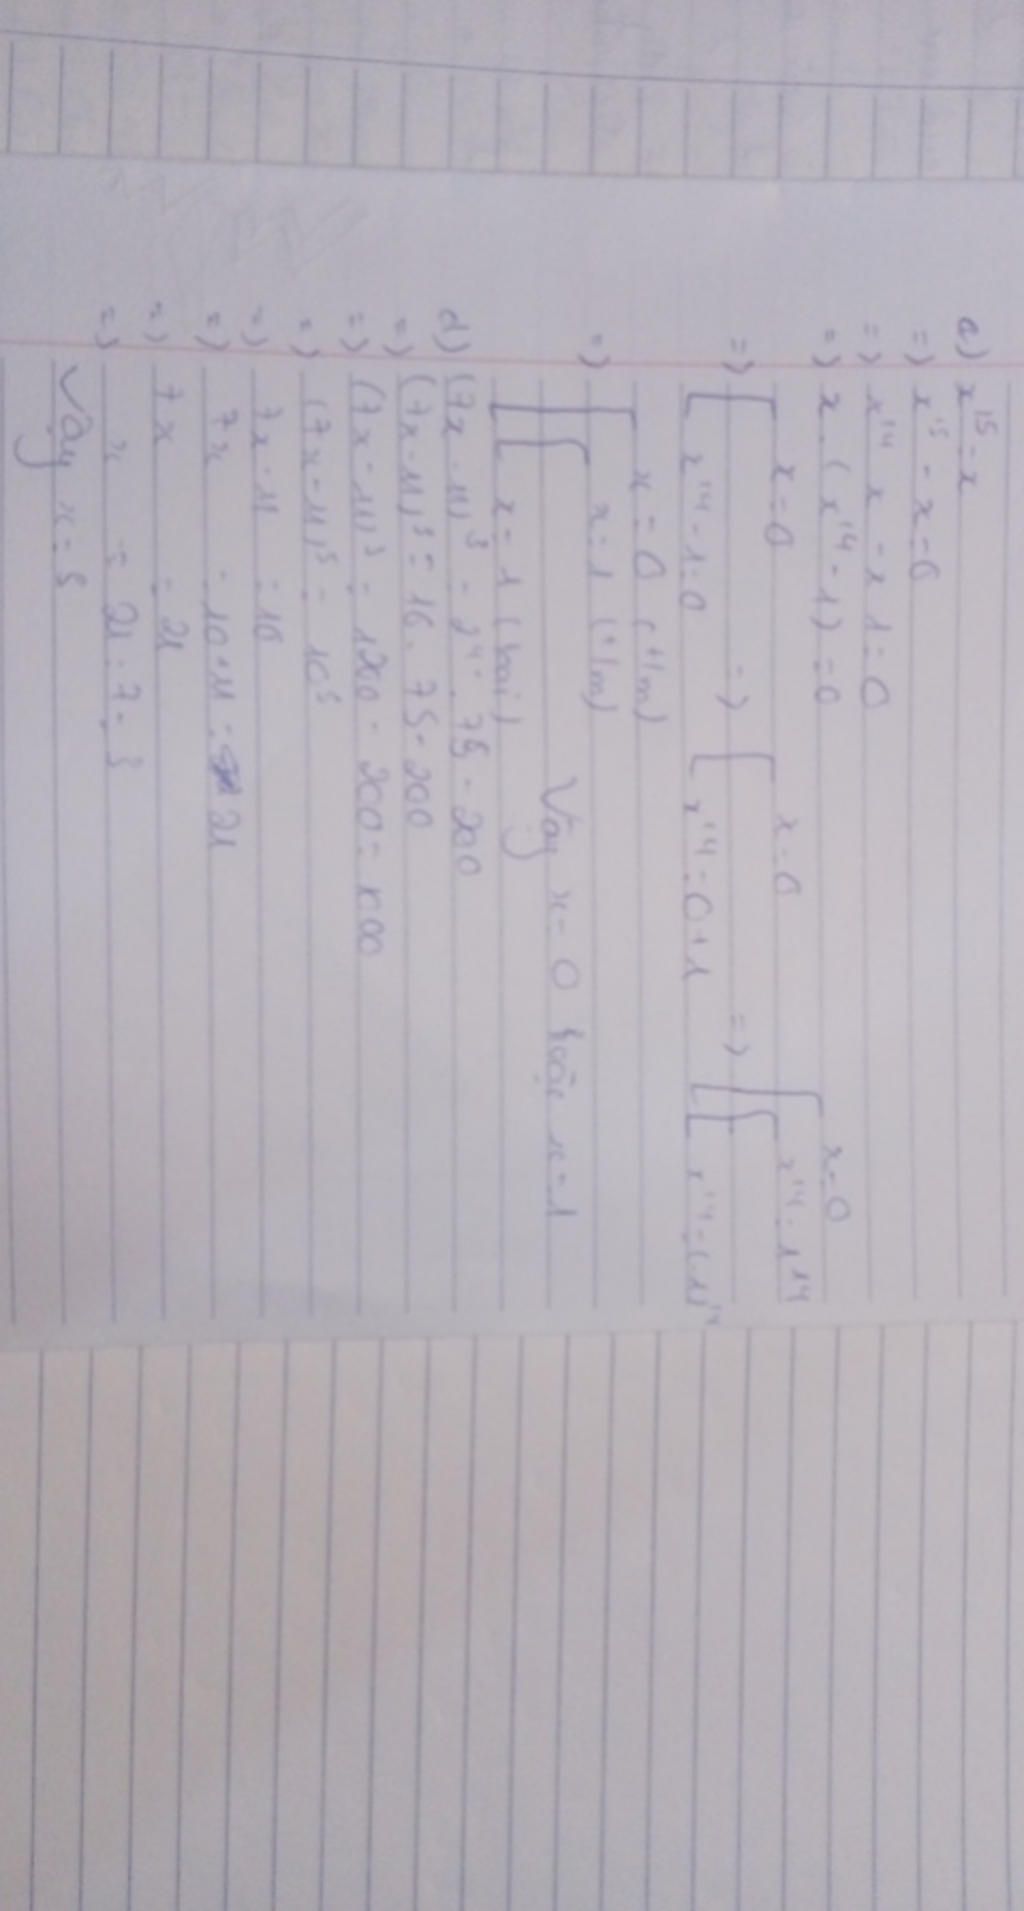 a) x¹⁵ = x
=) x¹⁵ - x = 0
=) x¹⁴ x - x 1 = 0
=) x . ( x¹⁴ - 1) = 0
=) [ x = 0 =) [ x = 0 =) [ x = 0
x¹⁴ - 1 = 0 x¹⁴ = 0 + 1 [ x¹⁴ = 1¹⁴
x¹⁴ = (-1)¹⁴
=) [ x = 0 ( t/m)
[ x = 1 ( t/m)
x = - 1 ( loại) Vậy x = 0 hoặc x = 1
d) (7x - 11)³ = 2⁴ . 75 - 200
=) (7x - 11)³ = 16 . 75 - 200
=) (7x - 11)³ = 1200 - 200 = 1000
=) (7x - 11)³ = 10³
=) 7x - 11 = 10
=) 7x = 10 + 11 = 21
=) 7x = 21
=) x = 21 : 7 = 3
Vậy x = 3